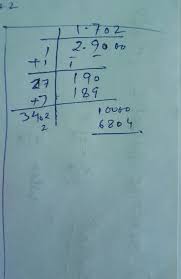 1.702
1 2.9000
+1 1
27 190
+7 189
3402 10000
2 6804